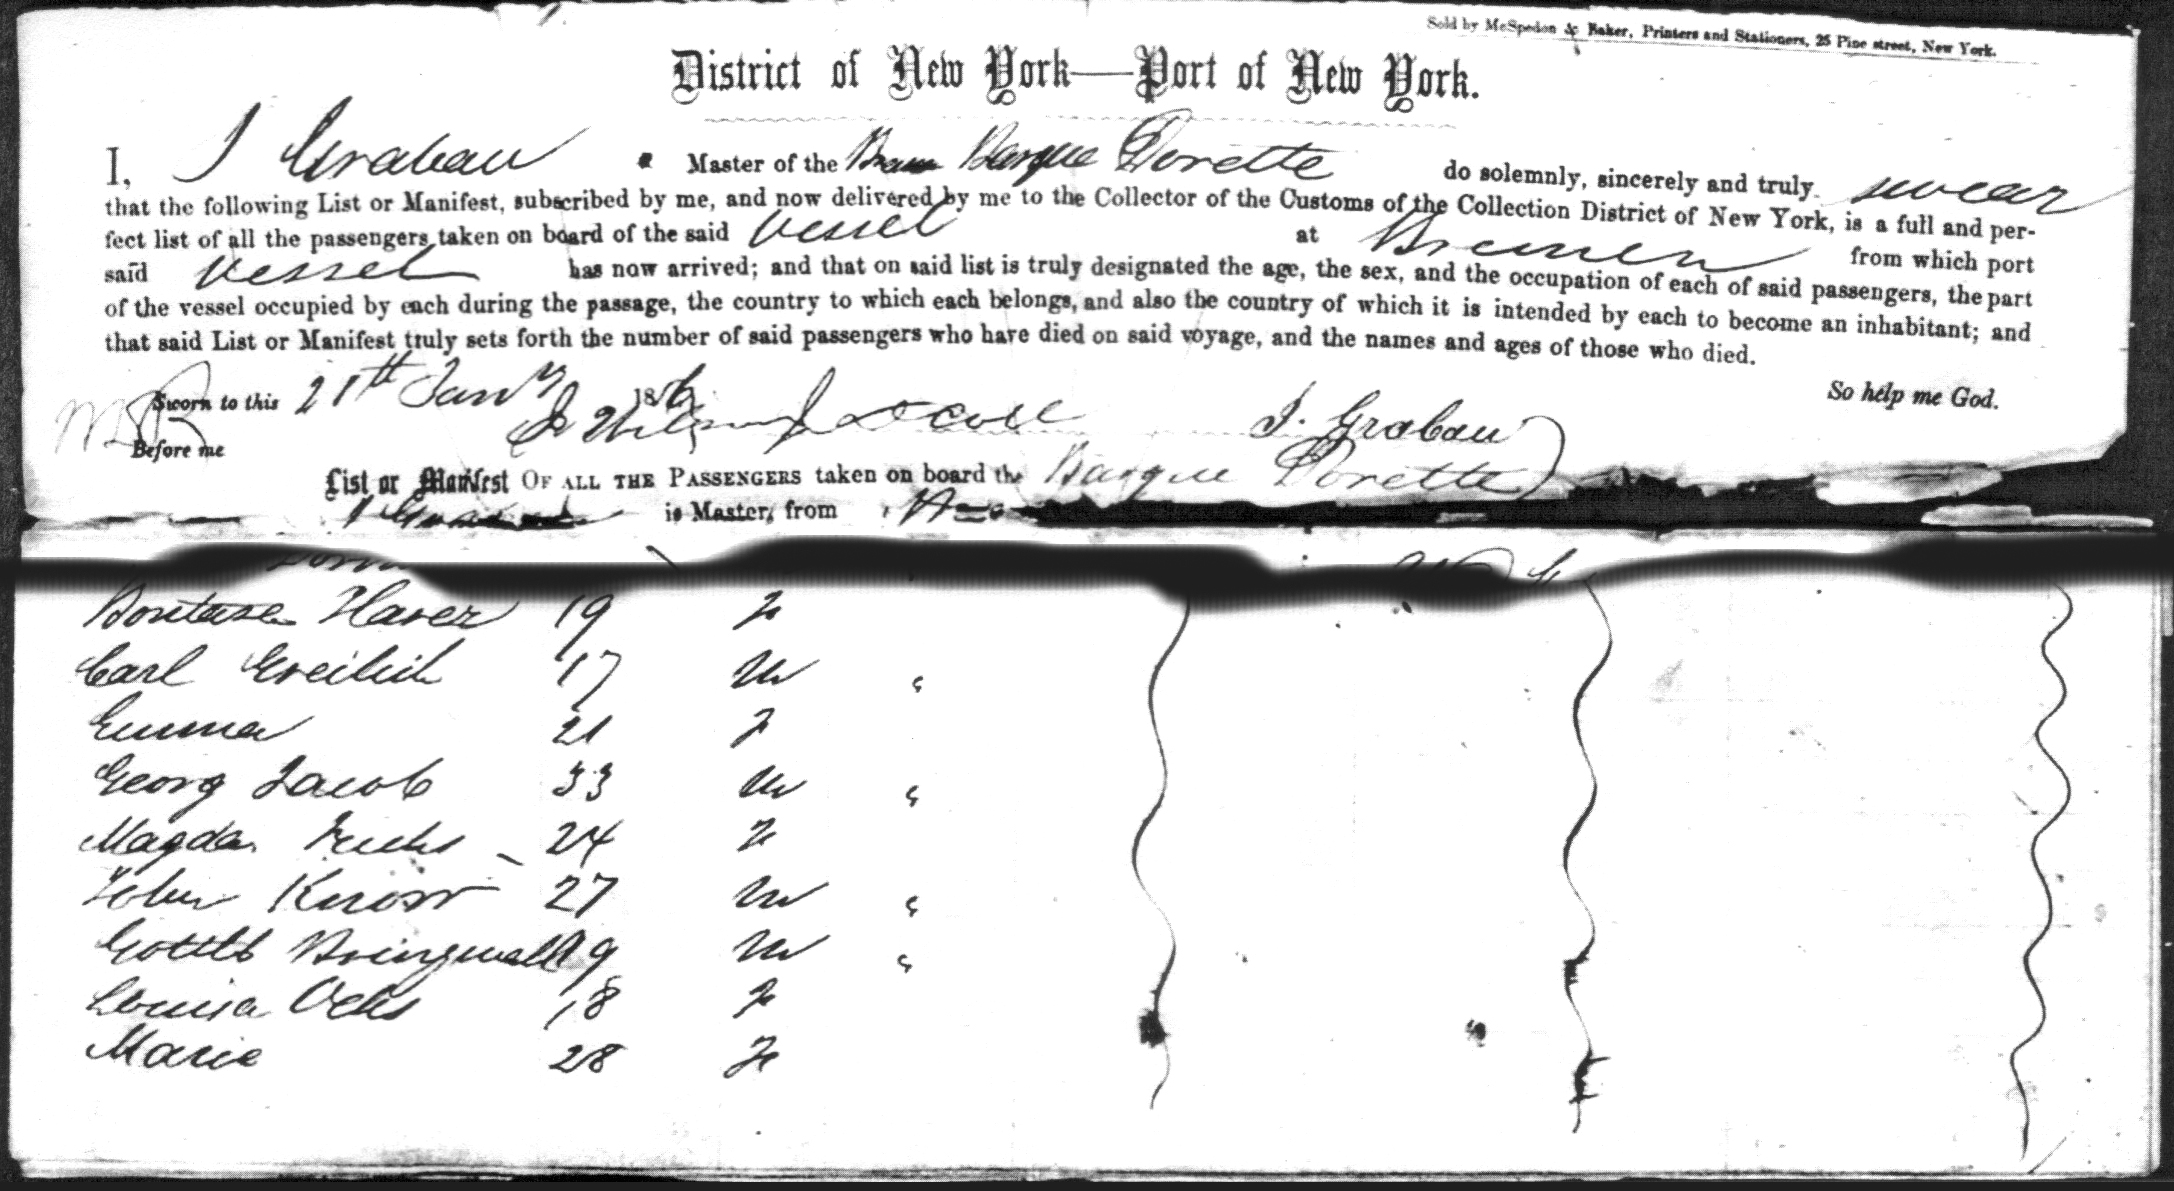 Sold by McSpedon & Baker, Printers and Stationers, 25 Pine street, New York.
District of New York—Port of New York.
I, J Grabau Master of the Brem Barque Dorette do solemnly, sincerely and truly swear
that the following List or Manifest, subscribed by me, and now delivered by me to the Collector of the Customs of the Collection District of New York, is a full and per-
fect list of all the passengers taken on board of the said vessel at Bremen from which port
said vessel has now arrived; and that on said list is truly designated the age, the sex, and the occupation of each of said passengers, the part
of the vessel occupied by each during the passage, the country to which each belongs, and also the country of which it is intended by each to become an inhabitant; and
that said List or Manifest truly sets forth the number of said passengers who have died on said voyage, and the names and ages of those who died.
So help me God.
Sworn to this 21th Jany 186
Before me J. Grabau
List or Manifest OF ALL THE PASSENGERS taken on board the Barque Dorette
is Master, from
19 F
Carl 17 M "
Emma 21 F
Georg Jacob 33 M "
Magda Fuchs 24 F
John Knorr 27 M "
Gottlb 19 M "
Louisa Ochs 18 F
Marie 28 F